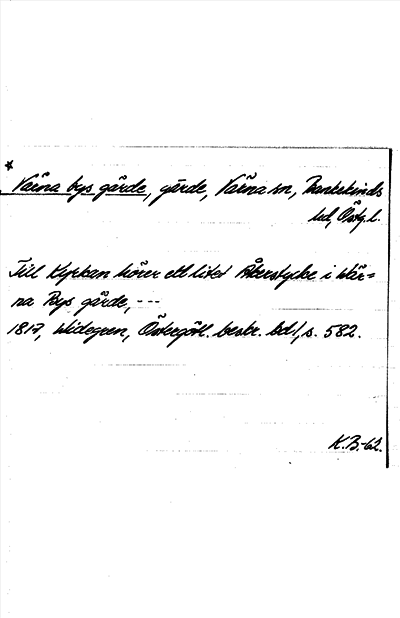 *
Värna bys gärde, gärde, Värna sn, Bankekinds
hd, Östg.l.
Till Kyrkan hörer ett litet Åkerstycke i Wär=
na Bys gärde, ---
1817, Widegren, Östergötl. beskr. bd 1, s. 582.
K.B.-62.